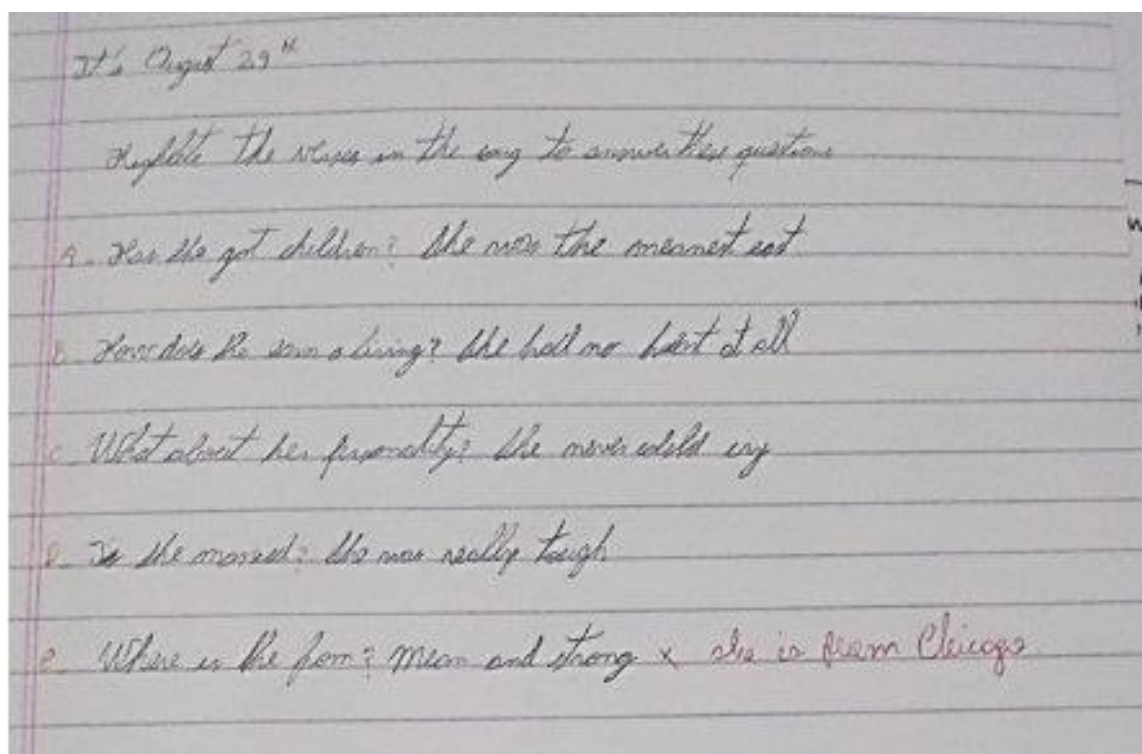 It's August 29th
Highlite the verses in the song to answer these questions
A. Has she got children? She was the meanest cat
B. How does she earn a living? She had no heart at all
C. What about her personality? She never could cry
D. Is she married? She was really tough
E. Where is she from? Mean and strong x she is from Chicago